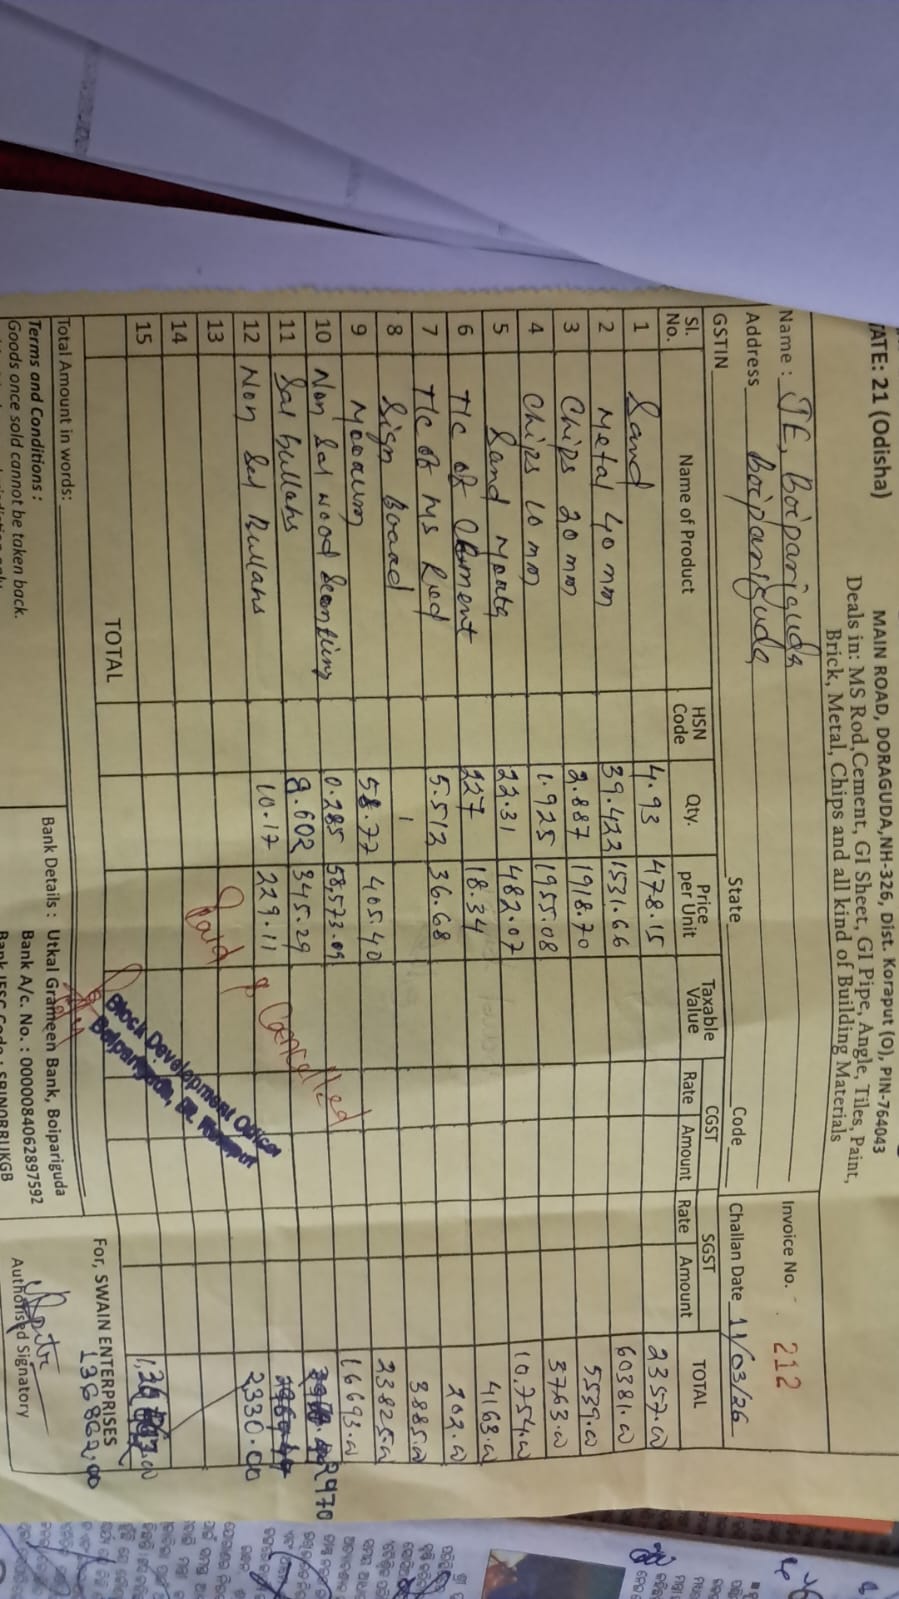 TATE: 21 (Odisha)
MAIN ROAD, DORAGUDA,NH-326, Dist. Koraput (O), PIN-764043
Deals in: MS Rod,Cement, GI Sheet, GI Pipe, Angle, Tiles, Paint,
Brick, Metal, Chips and all kind of Building Materials
Name : JE, Boipariguda
Invoice No. 212
Address Boipariguda
State Code
Challan Date 11/03/26
GSTIN
Sl. No. Name of Product HSN Code Qty. Price per Unit Taxable Value CGST Rate Amount SGST Rate Amount TOTAL
1 Sand 4.93 478.15 2357.00
2 Metal 40 mm 39.422 1531.66 60381.00
3 Chips 20 mm 2.887 1918.70 5539.00
4 Chips 10 mm 1.925 1955.08 3763.00
5 Sand 22.31 482.07 10,754.00
6 T/c of Cement 227 18.34 4163.00
7 T/c of MS Rod 5.512 36.68 202.00
8 Sign Board 1 3885.00
9 Mooram 58.77 405.40 23825.00
10 Non Sal wood 0.285 58,573.09 16693.00
11 Sal bullahs 8.602 345.29 2970
12 Non Sal Bullahs 10.17 229.11 2330.00
13
14
15
TOTAL
136862.00
Paid & Cancelled
Block Development Officer
Boipariguda,
Total Amount in words:
Terms and Conditions :
Goods once sold cannot be taken back.
Bank Details : Utkal Grameen Bank, Boipariguda
Bank A/c. No. : 000008406289​7592
For, SWAIN ENTERPRISES
Authorised Signatory